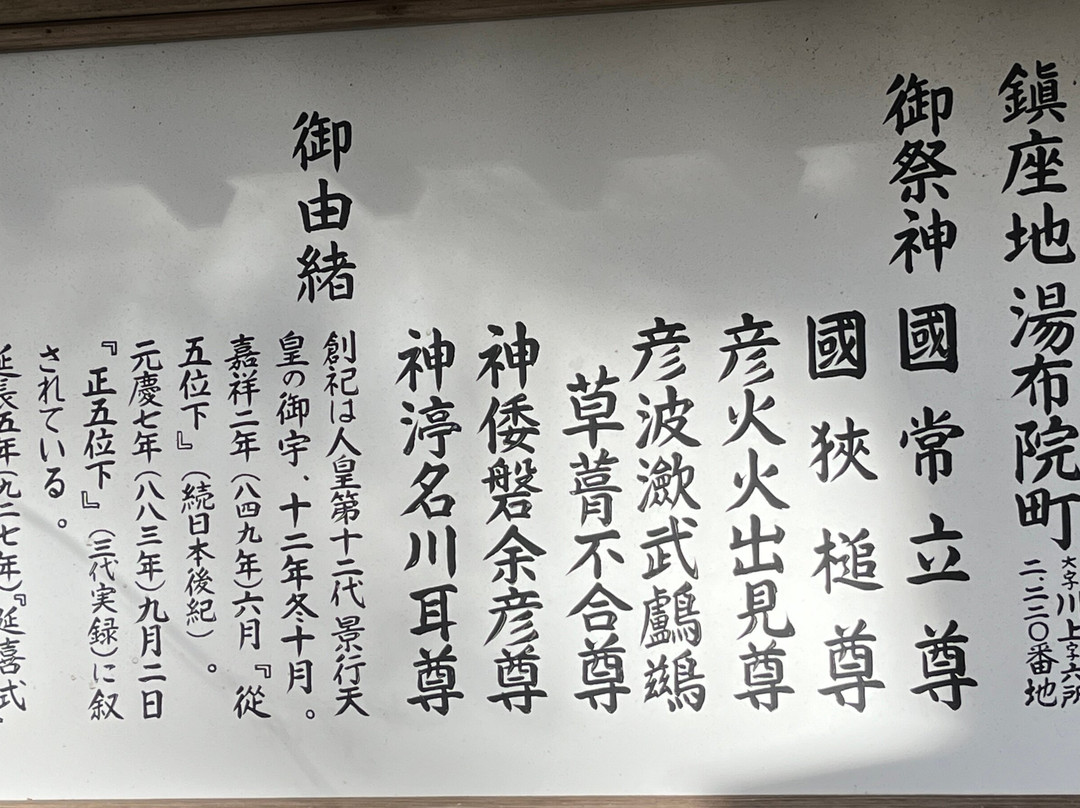 鎮座地 湯布院町 大字川上字六所
二、二二〇番地
御祭神 國常立尊
國狹槌尊
彦火火出見尊
彦波瀲武鸕鷀
草葺不合尊
神倭磐余彦尊
神渟名川耳尊
御由緒 創祀は人皇第十二代景行天
皇の御宇、十二年冬十月。
嘉祥二年(八四九年)六月『從
五位下』(続日本後紀)。
元慶七年(八八三年)九月二日
『正五位下』(三代実録)に叙
されている。
延長五年(九二七年)『延喜式